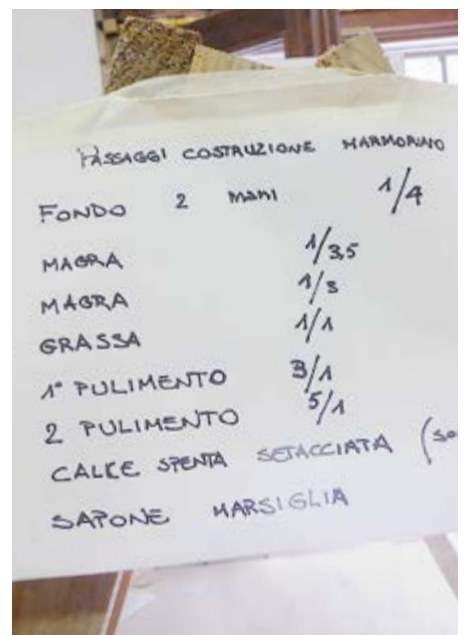 PASSAGGI COSTRUZIONE MARMORINO
FONDO 2 mani 1/4
MAGRA 1/3,5
MAGRA 1/3
GRASSA 1/1
1° PULIMENTO 3/1
2 PULIMENTO 5/1
CALCE SPENTA SETACCIATA (so
SAPONE MARSIGLIA